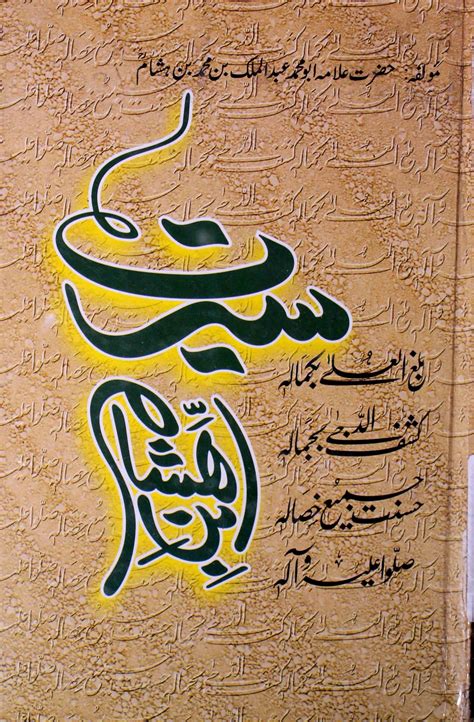 مؤلفہ: حضرت علامہ ابو محمد عبد الملک بن محمد بن ہشامؒ
سیرت
ابن ہشام
بلغ العلے بکمالہٖ
کشف الدجےٰ بجمالہٖ
حسنت جمیع خصالہٖ
صلّوا علیہ و آلہٖ